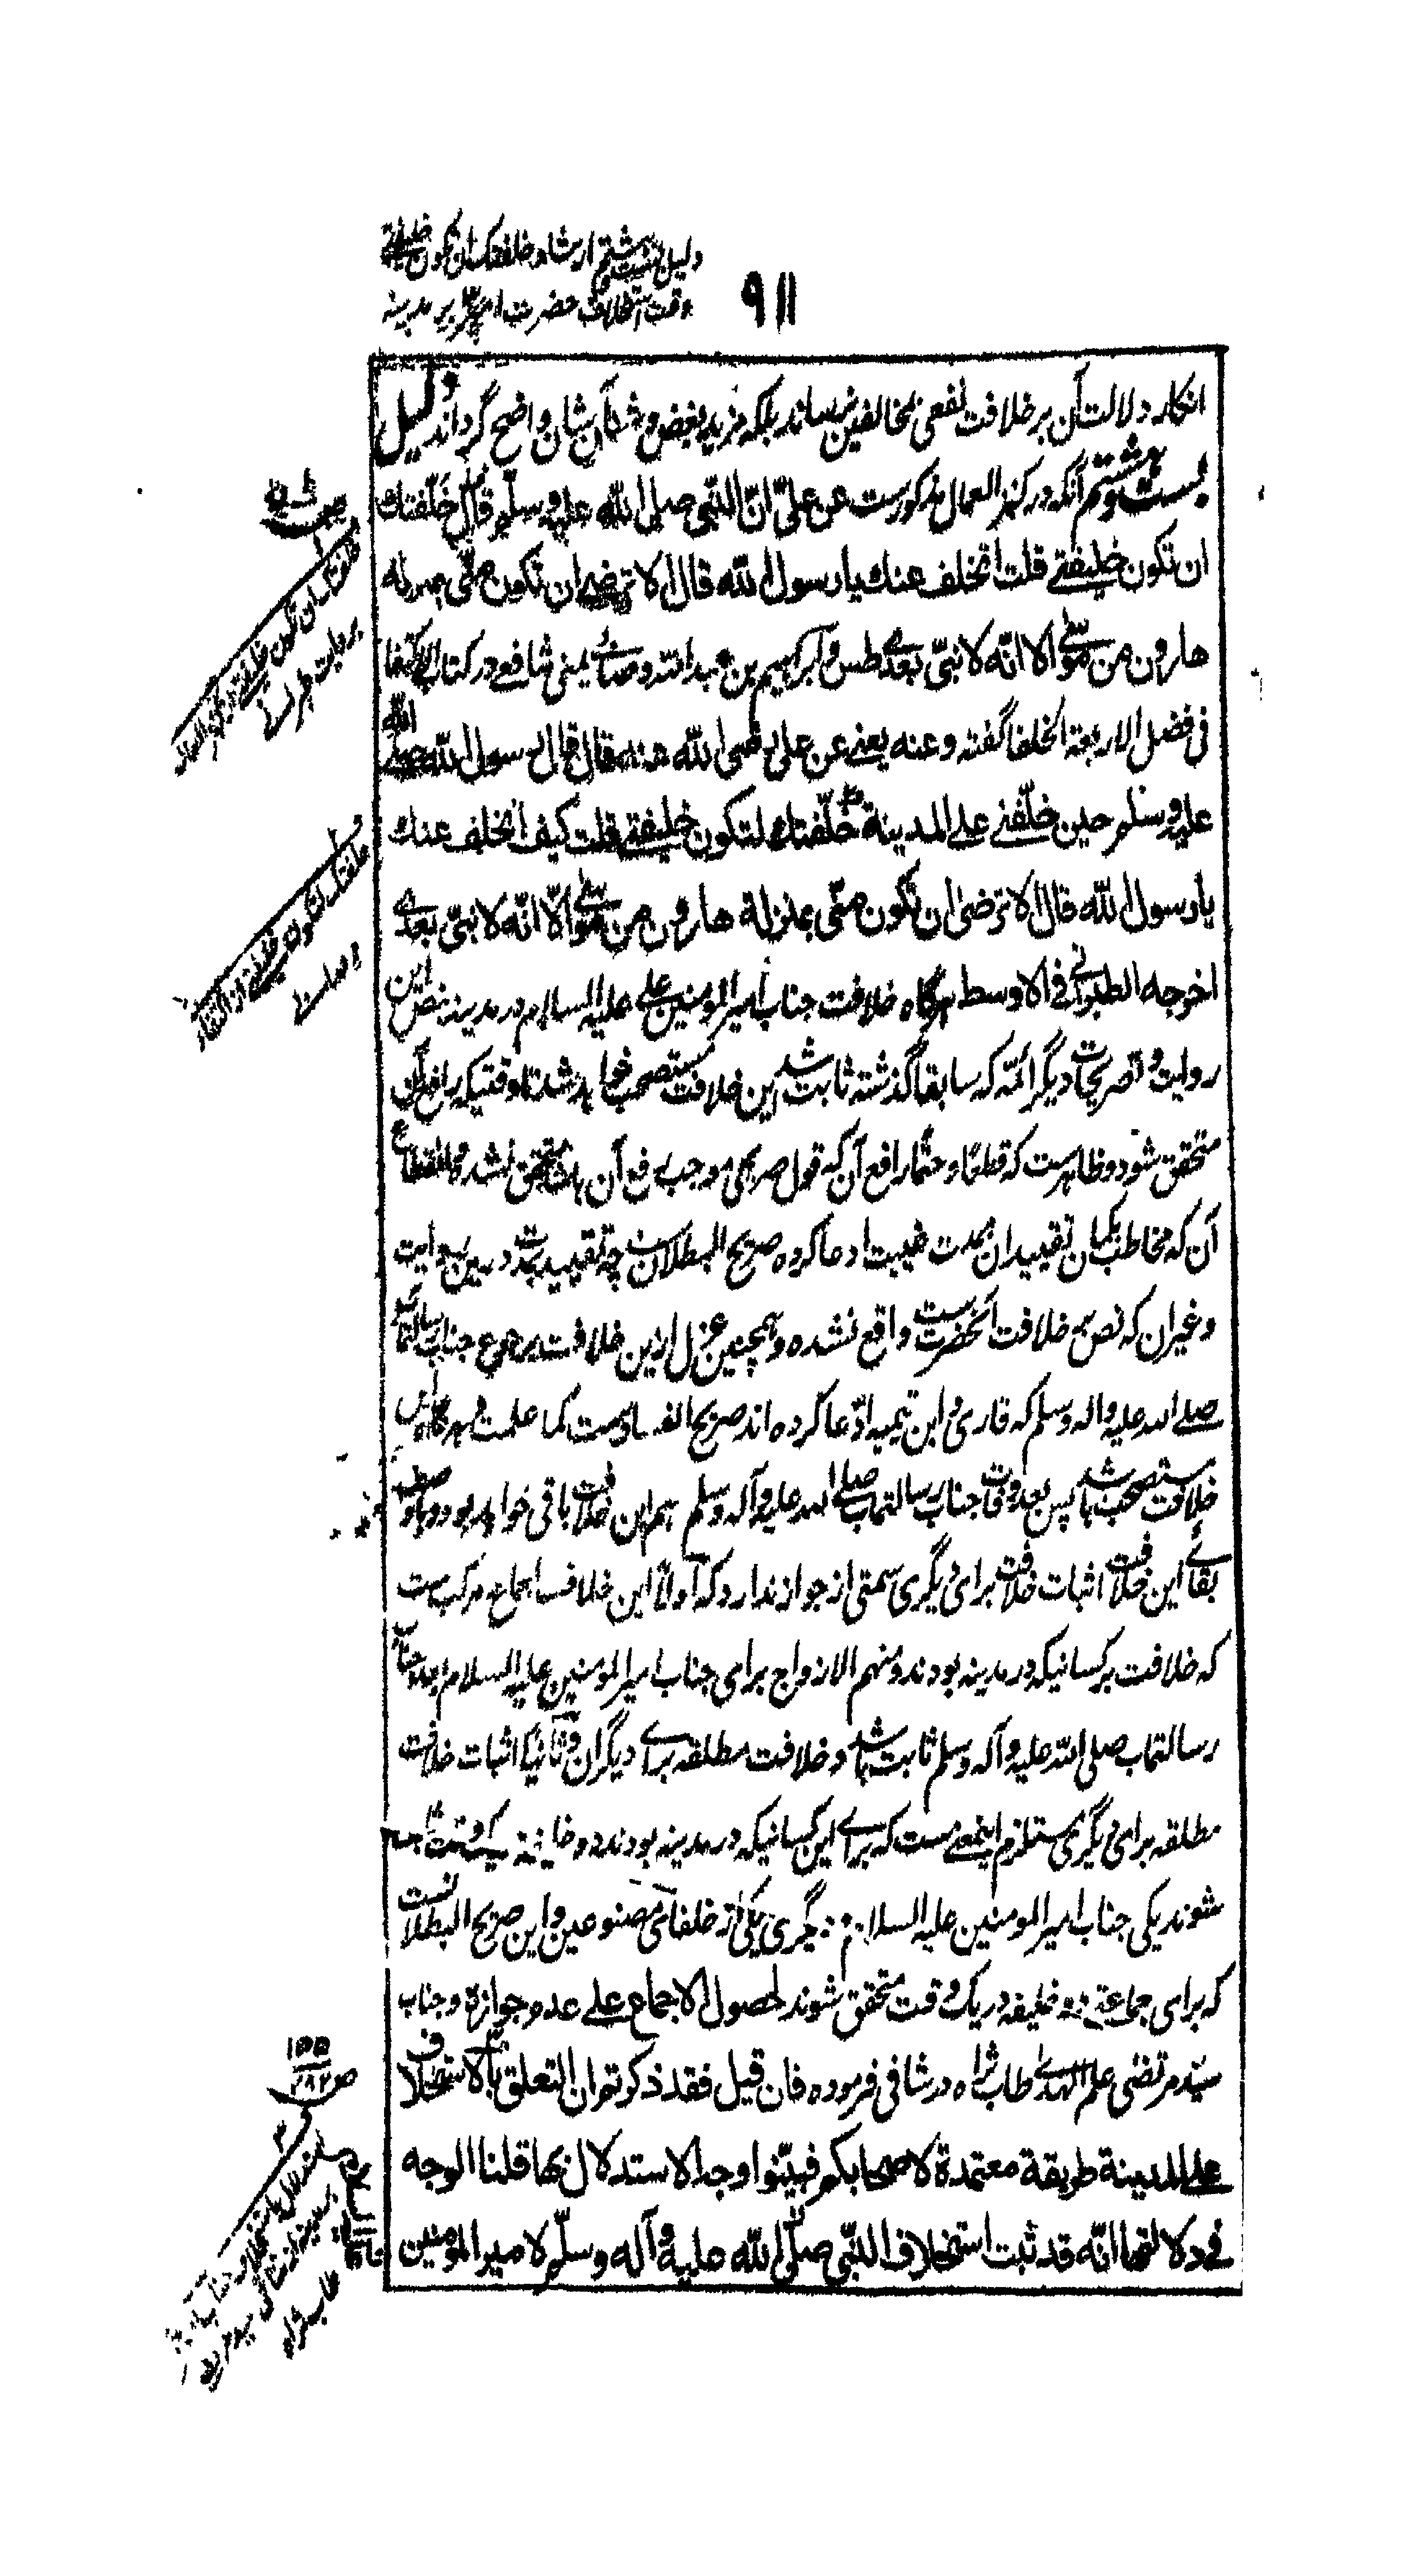 دلیل بست و هشتم ارشاد خلفتك ان تكون خلیفتی
وقت استخلاف حضرت امیر بر مدینه
٩١١
انکار دلالت آن بر خلافت نفعی بمخالفین نمی‌رساند بلکه مزید بغض و شنآن شان واضح گرداند دلیل
بست و هشتم آنکه در کنز العمال مذکورست عن علیّ انّ النّبی صلی الله علیه و سلّم قال خلّفتك
ان تكون خلیفتی قلت اتخلف عنك یا رسول الله قال الا ترضی ان تكون منّی بمنزلة
هارون من موسی الا انّه لا نبیّ بعدی طس و ابراهیم بن عبد الله وصابی یمنی شافعی در کتاب الاکتفا
فی فضل الاربعة الخلفا گفته و عنه یعنی عن علی رضی الله عنه قال قال رسول الله صلی الله
علیه و سلم حین خلّفنی علی المدینة خلّفتك لتكون خلیفتی قلت كیف اتخلف عنك
یا رسول الله قال الا ترضی ان تكون منّی بمنزلة هارون من موسی الّا انّه لا نبیّ بعدی
اخرجه الطبرانی فی الاوسط هرگاه خلافت جناب امیر المومنین علی علیه السلام در مدینه بنص این
روایت و تصریحات دیگر ائمّه که سابقا گذشته ثابت شد این خلافت مستصحب خواهد شد تا وقتیکه رافع آن
متحقق شود و ظاهرست که قطعًا و حتمًا رافع آن که قول صریحی موجب رفع آن باشد متحقق نشد و انقطاع
آن که مخاطب بگمان تقیید آن بمدت غیبت ادعا کرده صریح البطلان ست چه تقیید بمدت درین روایت
و غیر آن که نصوص خلافت آنحضرت ست واقع نشده و همچنین عزل ازین خلافت برجوع جناب رسالتمآب
صلی الله علیه و اله وسلم که قاری و ابن تیمیه ادّعا کرده اند صریح الفسادست کما علمت و هرگاه این
خلافت مستصحب باشد پس بعد وفات جناب رسالتمآب صلی الله علیه و آله وسلم هم این خلافت باقی خواهد بود و با وصف
بقای این خلافت اثبات خلافت برای دیگری سمتی از جواز ندارد که اولاً این خلاف اجماع مرکب ست
که خلافت بر کسانیکه در مدینه بودند و منهم الازواج برای جناب امیر المومنین علیه السلام بعد جناب
رسالتمآب صلی الله علیه و آله وسلم ثابت باشد و خلافت مطلقه برای دیگران و ثانیا اثبات خلافت
مطلقه برای دیگری مستلزم اینمعنی ست که برای این کسانیکه در مدینه بودند دو خلیفه
شوند یکی جناب امیر المومنین علیه السلام و دیگری یکی از خلفای مصنوعین و این صریح البطلانست
که برای جماعتی دو خلیفه در یک وقت متحقق شوند لحصول الاجماع علی عدم جوازه و جناب
سیّد مرتضی علم الهدی طاب ثراه در شافی فرموده فان قیل فقد ذكرتم ان التعلق بالاستخلاف
علی المدینة طریقة معتمدة لاصحابكم فبیّنوا وجه الاستدلال بها قلنا الوجه
فی دلالتها انّه قد ثبت استخلاف النّبی صلّی الله علیه و آله و سلّم لامیر المومنین
خلفتك ان تكون خلیفتی از کنز العمال
بروایت طبرانی
خلفتك لتكون خلیفتی از اکتفاء
وصابی
١٥٥